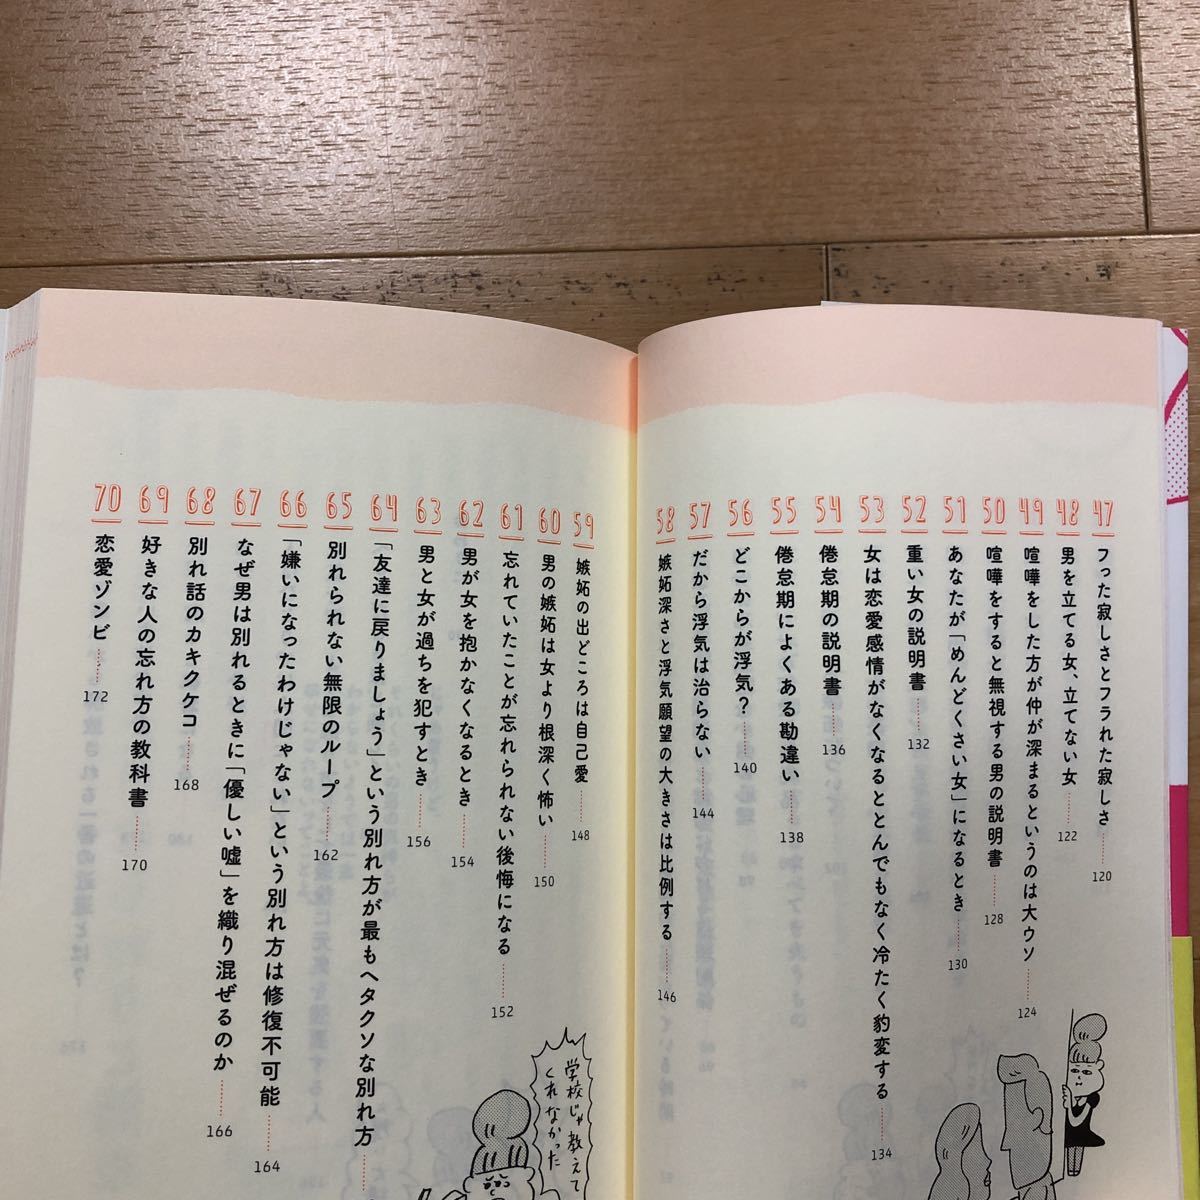 47 フった寂しさとフラれた寂しさ……120
48 男を立てる女、立てない女……122
49 喧嘩をした方が仲が深まるというのは大ウソ……124
50 喧嘩をすると無視する男の説明書……128
51 あなたが「めんどくさい女」になるとき……130
52 重い女の説明書……132
53 女は恋愛感情がなくなるととんでもなく冷たく豹変する……134
54 倦怠期の説明書……136
55 倦怠期によくある勘違い……138
56 どこからが浮気?……140
57 だから浮気は治らない……144
58 嫉妬深さと浮気願望の大きさは比例する……146
59 嫉妬の出どころは自己愛……148
60 男の嫉妬は女より根深く怖い……150
61 忘れていたことが忘れられない後悔になる……152
62 男が女を抱かなくなるとき……154
63 男と女が過ちを犯すとき……156
64 「友達に戻りましょう」という別れ方が最もヘタクソな別れ方
65 別れられない無限のループ……162
66 「嫌いになったわけじゃない」という別れ方は修復不可能……164
67 なぜ男は別れるときに「優しい嘘」を織り混ぜるのか……166
68 別れ話のカキクケコ……168
69 好きな人の忘れ方の教科書……170
70 恋愛ゾンビ……172
学校じゃ教えて
くれなかった